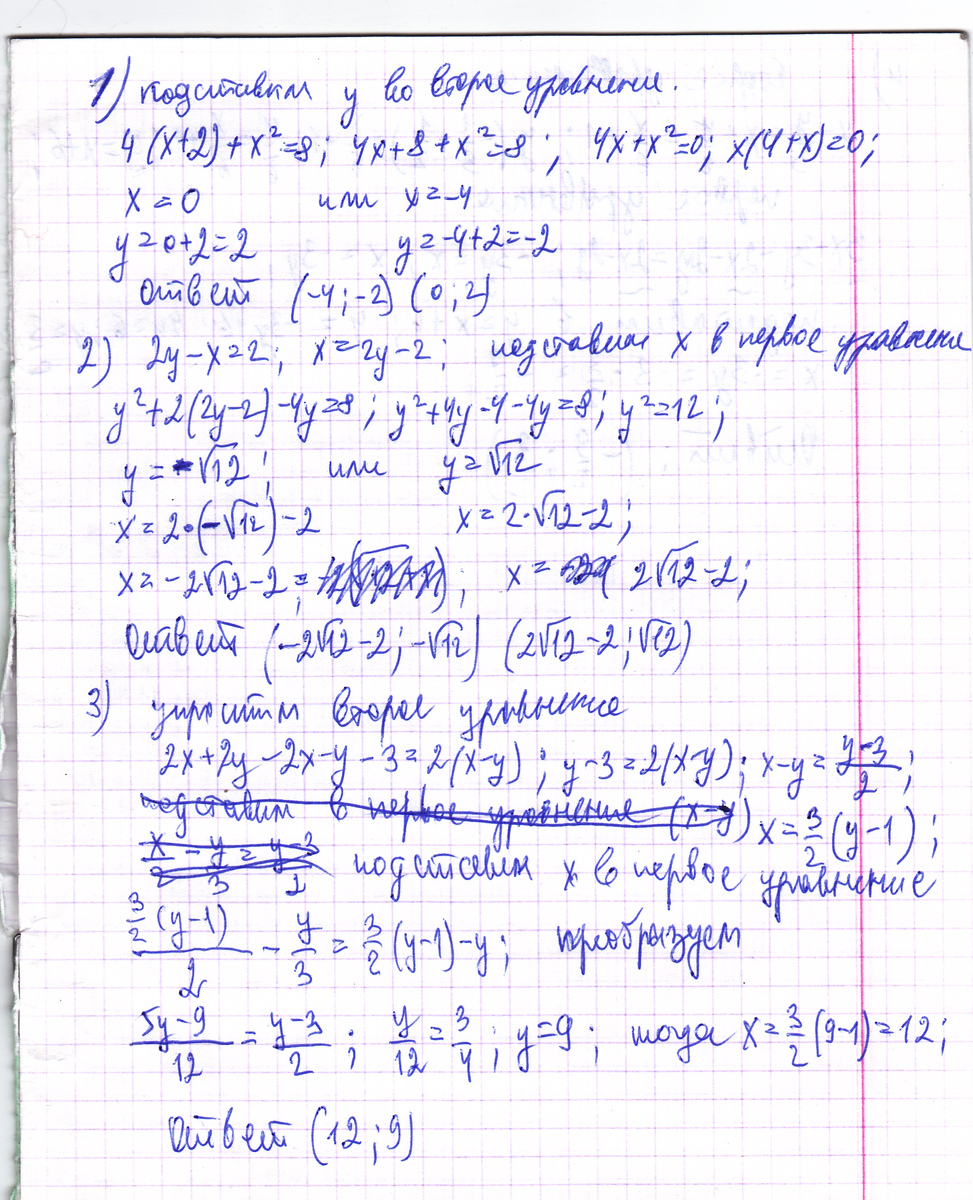 1) подставим y во второе уравнение.
4(x+2)+x²=8; 4x+8+x²=8; 4x+x²=0; x(4+x)=0;
x=0 или x=-4
y=0+2=2 y=-4+2=-2
Ответ (-4;-2) (0;2)
2) 2y-x=2; x=2y-2; подставим x в первое уравнение
y²+2(2y-2)-4y=8; y²+4y-4-4y=8; y²=12;
y=-√12; или y=√12
x=2·(-√12)-2 x=2·√12-2;
x=-2√12-2= ; x= 2√12-2;
Ответ (-2√12-2;-√12) (2√12-2;√12)
3) упростим второе уравнение
2x+2y-2x-y-3=2(x-y); y-3=2(x-y); x-y=(y-3)/2;
подставим в первое уравнение (x-y) x=3/2(y-1);
x/2-y/3=(y-3)/2 подставим x в первое уравнение
(3/2(y-1))/2-y/3=3/2(y-1)-y; преобразуем
(5y-9)/12=(y-3)/2; y/12=3/4; y=9; тогда x=3/2(9-1)=12;
Ответ (12;9)